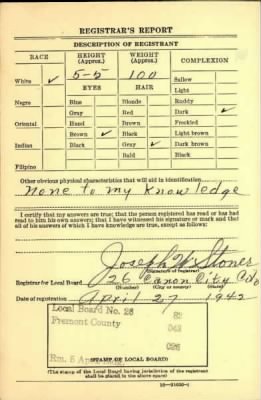 REGISTRAR'S REPORT
DESCRIPTION OF REGISTRANT
RACE HEIGHT (Approx.) WEIGHT (Approx.) COMPLEXION
White ✓ 5-5 100 Sallow
EYES HAIR Light
Negro Blue Blonde Ruddy
Gray Red Dark ✓
Oriental Hazel Brown Freckled
Brown ✓ Black Light brown
Indian Black Gray ✓ Dark brown
Bald Black
Filipino
Other obvious physical characteristics that will aid in identification
None to my knowledge
I certify that my answers are true; that the person registered has read or has had
read to him his own answers; that I have witnessed his signature or mark and that
all of his answers of which I have knowledge are true, except as follows:
Joseph W Stoner
(Signature of registrar)
Registrar for Local Board 26 Canon City Colo
(Number) (City or county) (State)
Date of registration April 27 1942
Local Board No. 26
Fremont County
043
026
Rm. 5
(STAMP OF LOCAL BOARD)
(The stamp of the Local Board having jurisdiction of the registrant
shall be placed in the above space)